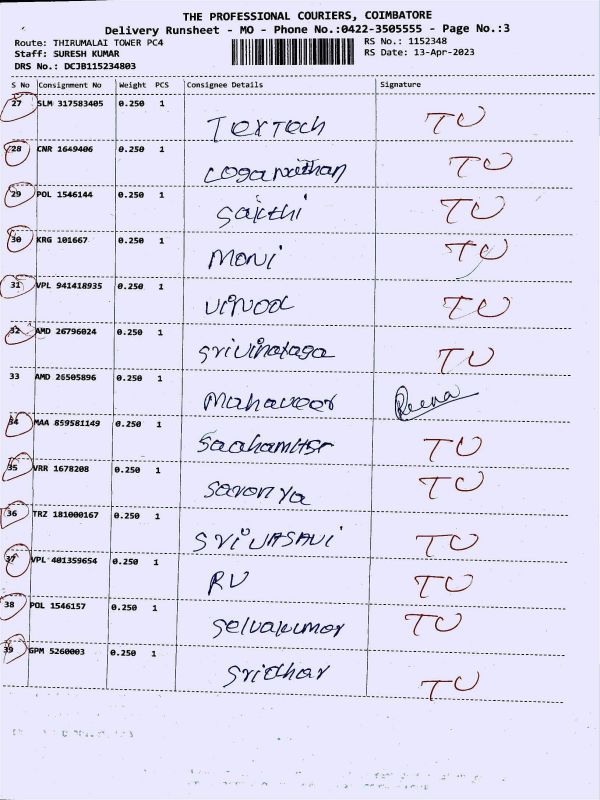 THE PROFESSIONAL COURIERS, COIMBATORE
Delivery Runsheet - MO - Phone No.:0422-3505555 - Page No.:3
Route: THIRUMALAI TOWER PC4
RS No.: 1152348
Staff: SURESH KUMAR
RS Date: 13-Apr-2023
DRS No.: DCJB115234803
S No Consignment No Weight PCS Consignee Details Signature
27 SLM 317583405 0.250 1 Textech TU
28 CNR 1649406 0.250 1 Loganathan TU
29 POL 1546144 0.250 1 Sakthi TU
30 KRG 101667 0.250 1 Moni TU
31 VPL 941418935 0.250 1 Vinod TU
32 AMD 26796024 0.250 1 TU
33 AMD 26505896 0.250 1 Mahaveer Reena
34 MAA 859581149 0.250 1 TU
35 VRR 1678208 0.250 1 Saronya TU
36 TRZ 181000167 0.250 1 SriVASAVi TU
37 VPL 401359654 0.250 1 RV TU
38 POL 1546157 0.250 1 Selvakumor TU
39 GPM 5260003 0.250 1 Sridhar TU